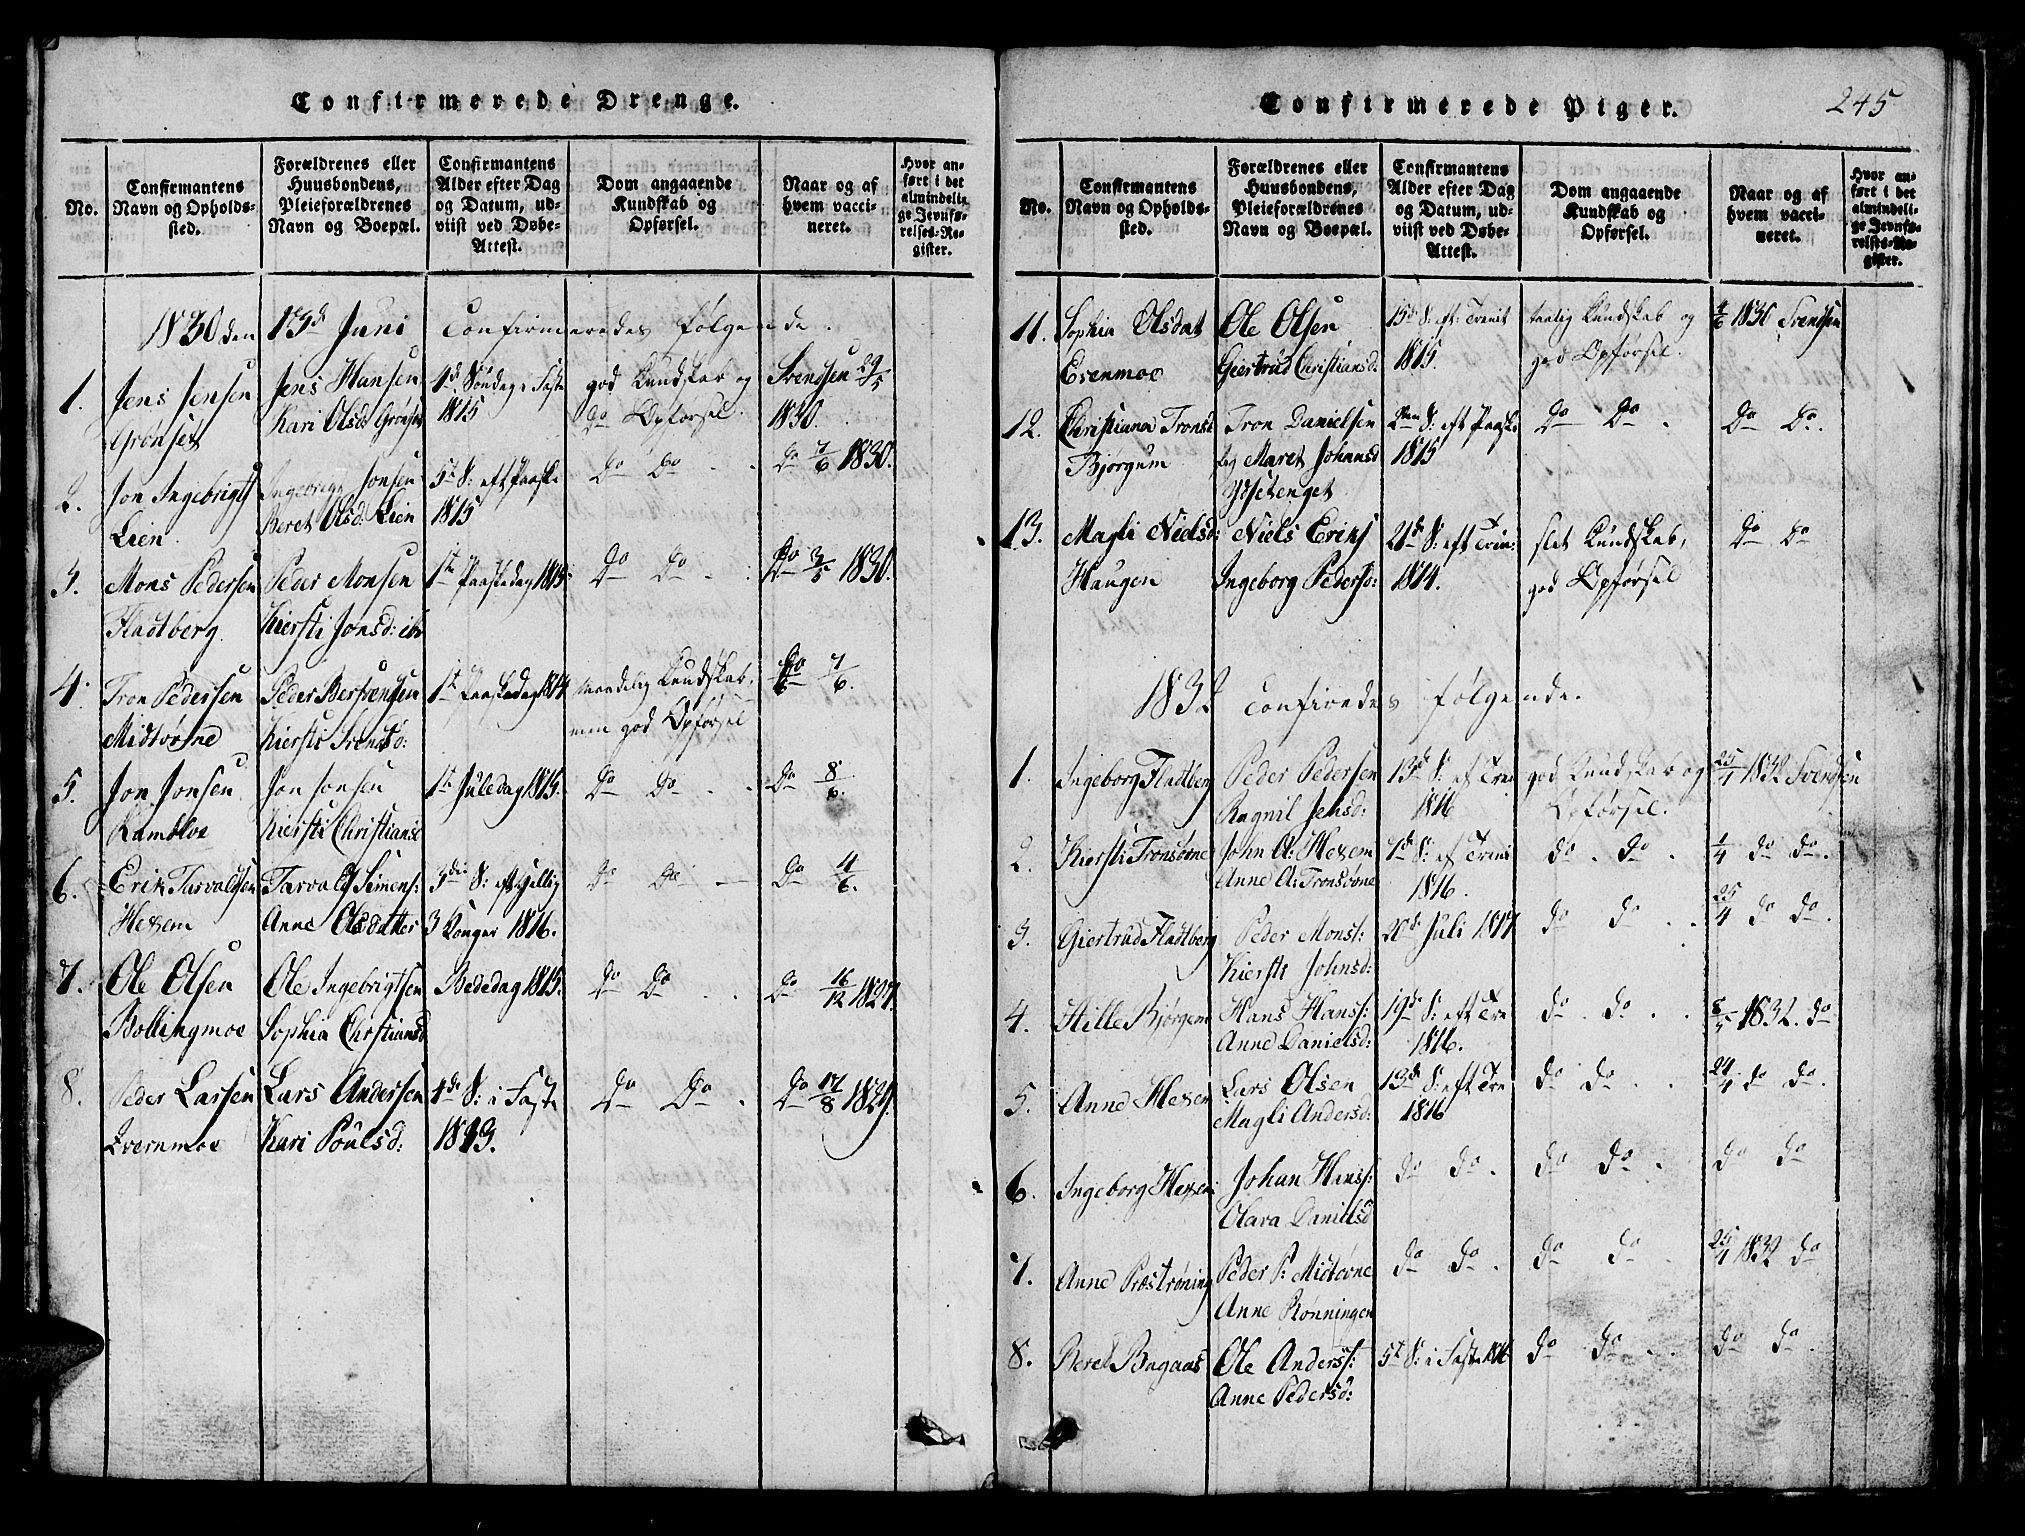 Confirmerede Drenge.
No.
Confirmantens
Navn og Opholds-
sted.
Forældrenes eller
Huusbondens,
Pleieforældrenes
Navn og Boepæl.
Confirmantens
Alder efter Dag
og Datum, ud-
viist ved Døbe-
Attest.
Dom angaaende
Kundskab og
Opførsel.
Naar og af
hvem vacci-
neret.
Hvor an-
ført i det
almindeli-
ge Jevnfø-
relses-Re-
gister.
1830 den 13de Juni Confirmeredes følgende.
1. Jens Jensen
Grønset
Jens Hansen
Kari Olsd: Grønset
4de Søndag i Faste
1815
god Kundskab og
do Opførsel.
Svendsen 29/5
1830.
2. Jon Ingebrigts
Lien
Ingebrigt Jonsen
Beret Olsd: Lien
5te S: eft Paaske
1815
do do
do 7/6 1830.
3. Mons Pedersen
Fladtberg
Peder Monsen
Kiersti Jonsd: ibi
1ste Paaskedag 1815.
do do
do 3/5 1830.
4. Tron Pedersen
Midtøvne
Peder Bertsensen
Kiersti Svensd:
1ste Paaskedag 1814
maadelig Kundskab,
men god Opførsel
do 7/6.
5. Jon Jonsen
Ramsløe
Jon Jonsen
Kiersti Christiansd
1ste Juledag 1815.
do do
do 8/6.
6. Erik Tarvaldsen
Hexem
Tarvald Simens:
Anne Olsdatter
3die S: eft Hellig
3 Konger 1816.
do do
do 4/6.
7. Ole Olsen
Bollingmoe
Ole Ingebrigtsen
Sophia Christiansd
Bededag 1815.
do do
do 16/12 1827.
8. Peder Larsen
Evernmoe
Lars Andersen
Kari Poulsd:
4de S: i Faste
1813.
do do
do 17/8 1829.
Confirmerede Piger. 245
No.
Confirmantens
Navn og Opholds-
sted.
Forældrenes eller
Huusbondens,
Pleieforældrenes
Navn og Boepæl.
Confirmantens
Alder efter Dag
og Datum, ud-
viist ved Døbe-
Attest.
Dom angaaende
Kundskab og
Opførsel.
Naar og af
hvem vacci-
neret.
Hvor an-
ført i det
almindeli-
ge Jevnfø-
relses-Re-
gister.
11. Sophia Olsdat
Evenmoe
Ole Olsen
Giertrud Christiansd:
15de S: eft: Trenit
1815.
taalig Kundskab og
god Opførsel.
4/6 1830 Svendsen
12. Christiana Tronsd
Bjørgum
Tron Danielsen
og Maret Johansd
Ysetenget
2den S: eft Paaske
1815
do do
do do
13. Magli Nielsd:
Haugen
Niels Eriks
Ingeborg Pedersd:
21de S: eft Trin:
1814.
slet Kundskab,
god Opførsel
do do
1832 Confiredes følgende.
1. Ingeborg Fladtberg
Peder Pedersen
Ragnil Jensd:
13de S: ef Tren
1816
god Kundskab og
Opførsel.
25/4 1832 Svendsen
2. Kiersti Tronsøvne
John A: Hexem
Anne A: Tronsøvne
7de S: ef Treni
1816.
do. do.
1/4 do do.
3. Giertrud Fladtberg
Peder Mons:
Kiersti Johnsd:
20de Juli 1817
do do
25/4 do do.
4. Hille Bjørgem
Hans Hans:
Anne Danielsd:
19de S: eft Tre
1816.
do. do.
8/5 1832. do
5. Anne Hexem
Lars Olsen
Magli Andersd:
13de S: eft Tre
1816
do do
24/4 do do.
6. Ingeborg Hexem
Johan Hans:
Olava Danielsd
do do.
do do.
do do
7. Anne Præstrøning
Peder P: Midtøvne
Anne Rønningen
do do.
do do
25/4 1832 do
8. Beret Bagaas
Ole Anderss:
Anne Pedersd:
5te S: i Faste 1816
do do
do do.